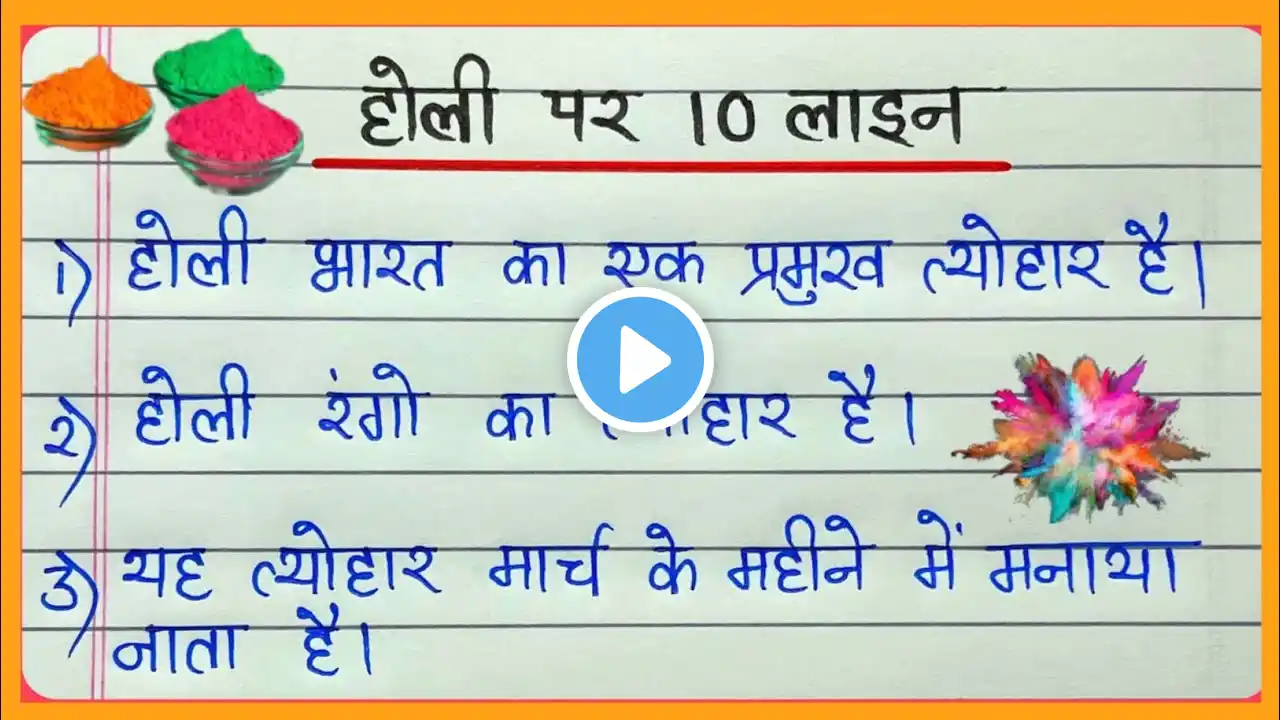 होली पर 10 लाइन
1) होली भारत का एक प्रमुख त्योहार है।
2) होली रंगो का है।
3) यह त्योहार मार्च के महीने में मनाया
जाता है।